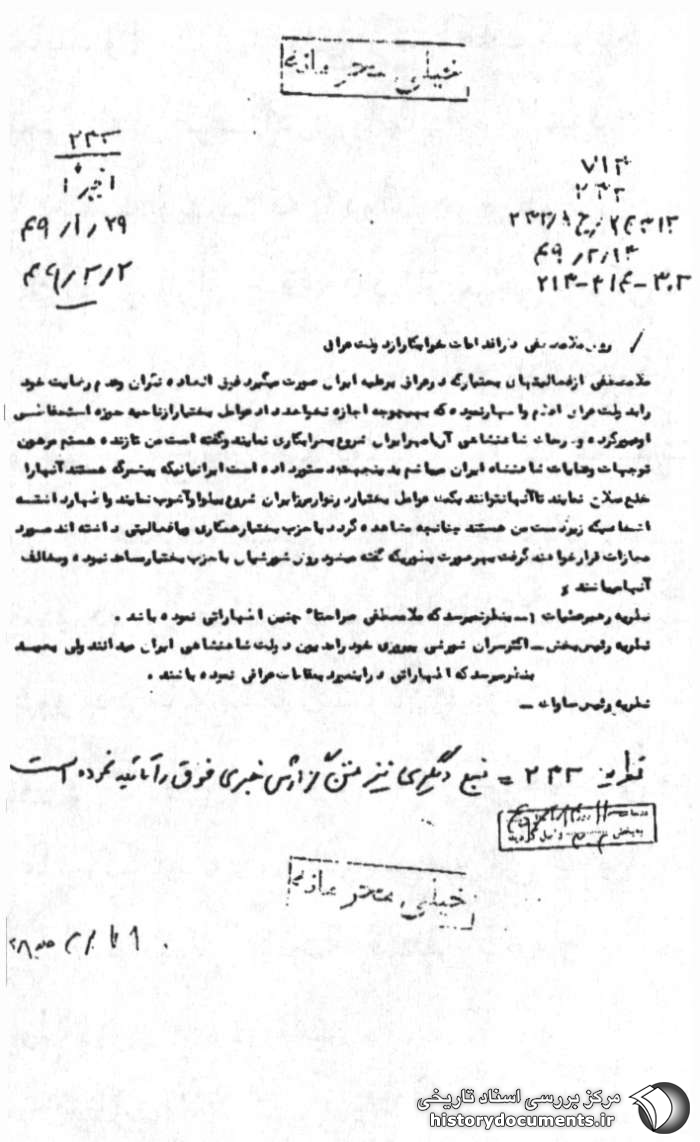 خیلی محرمانه
۲۳۳
۷۱۳
اخیرا
۲۳۲
۴۹/۱/۲۹
۴۹/۲/۱۳
۲۱۳-۳۱۴-۳۰۳
ملامصطفی از فعالیتهای بختیار که در عراق بر علیه ایران صورت میگیرد فوق العاده نگران وعدم رضایت خود
رابه دولت عراق اعلام واظهار نموده که بهیچوجه اجازه نخواهد داد عوامل بختیار از ناحیه حوزه استحفاظی
او عبور کرده و بخاک شاهنشاهی آریامهر ایران شروع بخرابکاری نمایند وگفته است من تا زنده هستم مرهون
توجهات وعنایات شاهنشاه ایران میباشم بدینجهت دستور داده است ایرانیانیکه پیشمرگه هستند آنها را
خلع سلاح نمایند تا آنها نتوانند بکمک عوامل بختیار در نوار مرز ایران شروع ببلوا وآشوب نمایند واظهار داشته
اشخاصیکه زیر دست من هستند چنانچه مشاهده گردد با حزب بختیار همکاری ویا فعالیتی داشته اند مورد
مجازات قرار خواهند گرفت بهر صورت بطوریکه گفته میشود رویه شورشیان با حزب بختیار مساعد نبوده و مخالف
آنها میباشند
نظریه رهبر عملیات ـ بنظر نمیرسد که ملامصطفی صراحتا" چنین اظهاراتی نموده باشد .
نظریه رئیس بخش ـ اکثر سران شورشی پیروزی خود را مدیون دولت شاهنشاهی ایران میدانند ولی بعید
بنظر میرسد که اظهاراتی در اینمورد بمقامات عراقی نموده باشند .
نظریه رئیس ساواک ـ
نظریه ۲۳۲ = منبع دیگری نیز متن گزارش خبری فوق را تائید نموده است
خیلی محرمانه
مرکز بررسی اسناد تاریخی
historydocuments.ir